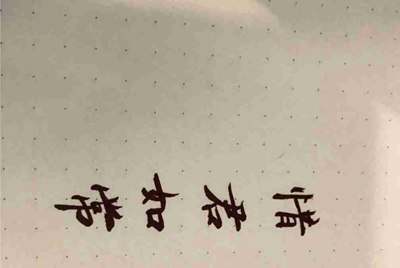 惜君如常